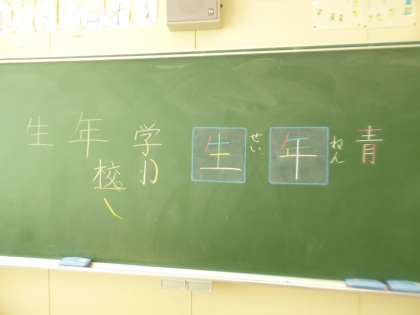 青
年
ねん
生
せい
学
年
校
生